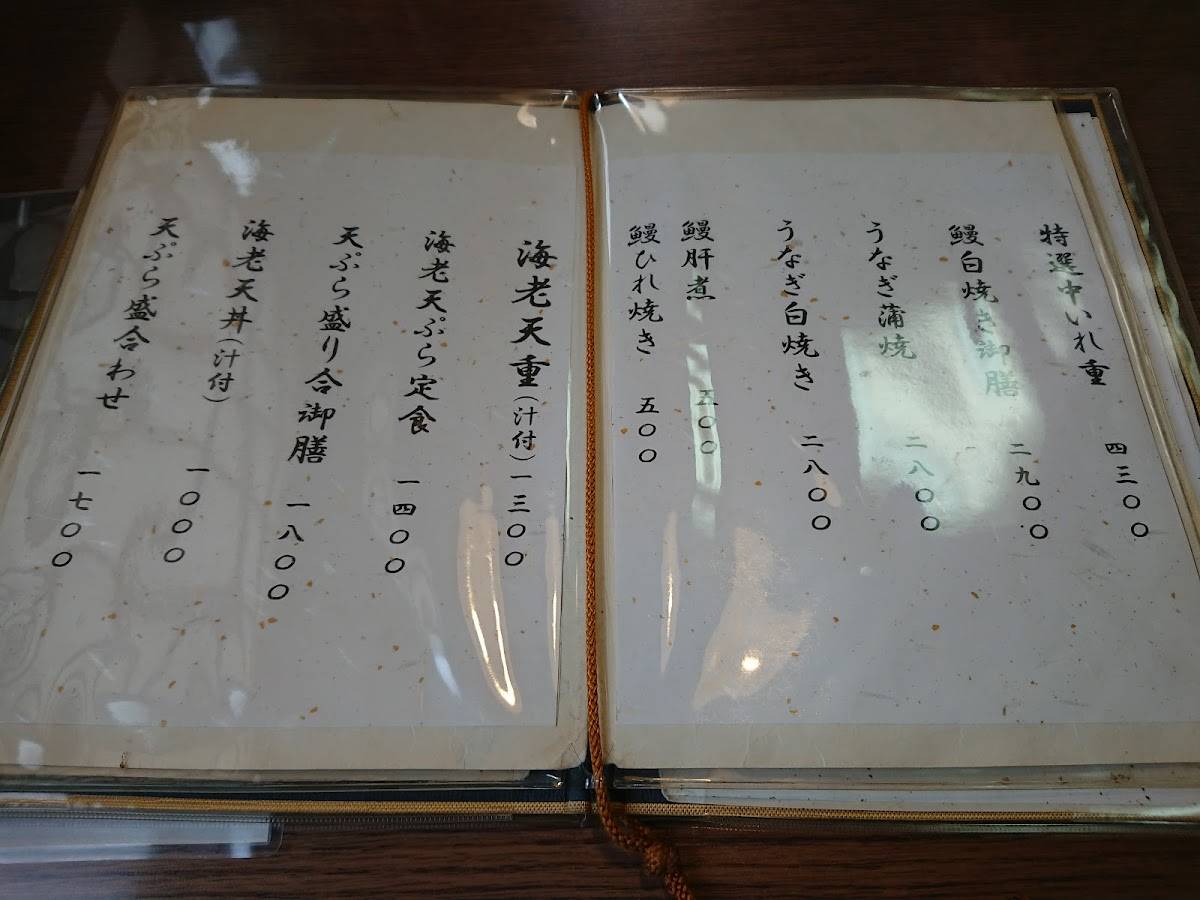 特選中いれ重 四三〇〇
鰻白焼き御膳 二九〇〇
うなぎ蒲焼 二八〇〇
うなぎ白焼き 二八〇〇
鰻肝煮 五〇〇
鰻ひれ焼き 五〇〇
海老天重(汁付)一三〇〇
海老天ぷら定食 一四〇〇
天ぷら盛り合御膳 一八〇〇
海老天丼(汁付) 一〇〇〇
天ぷら盛合わせ 一七〇〇